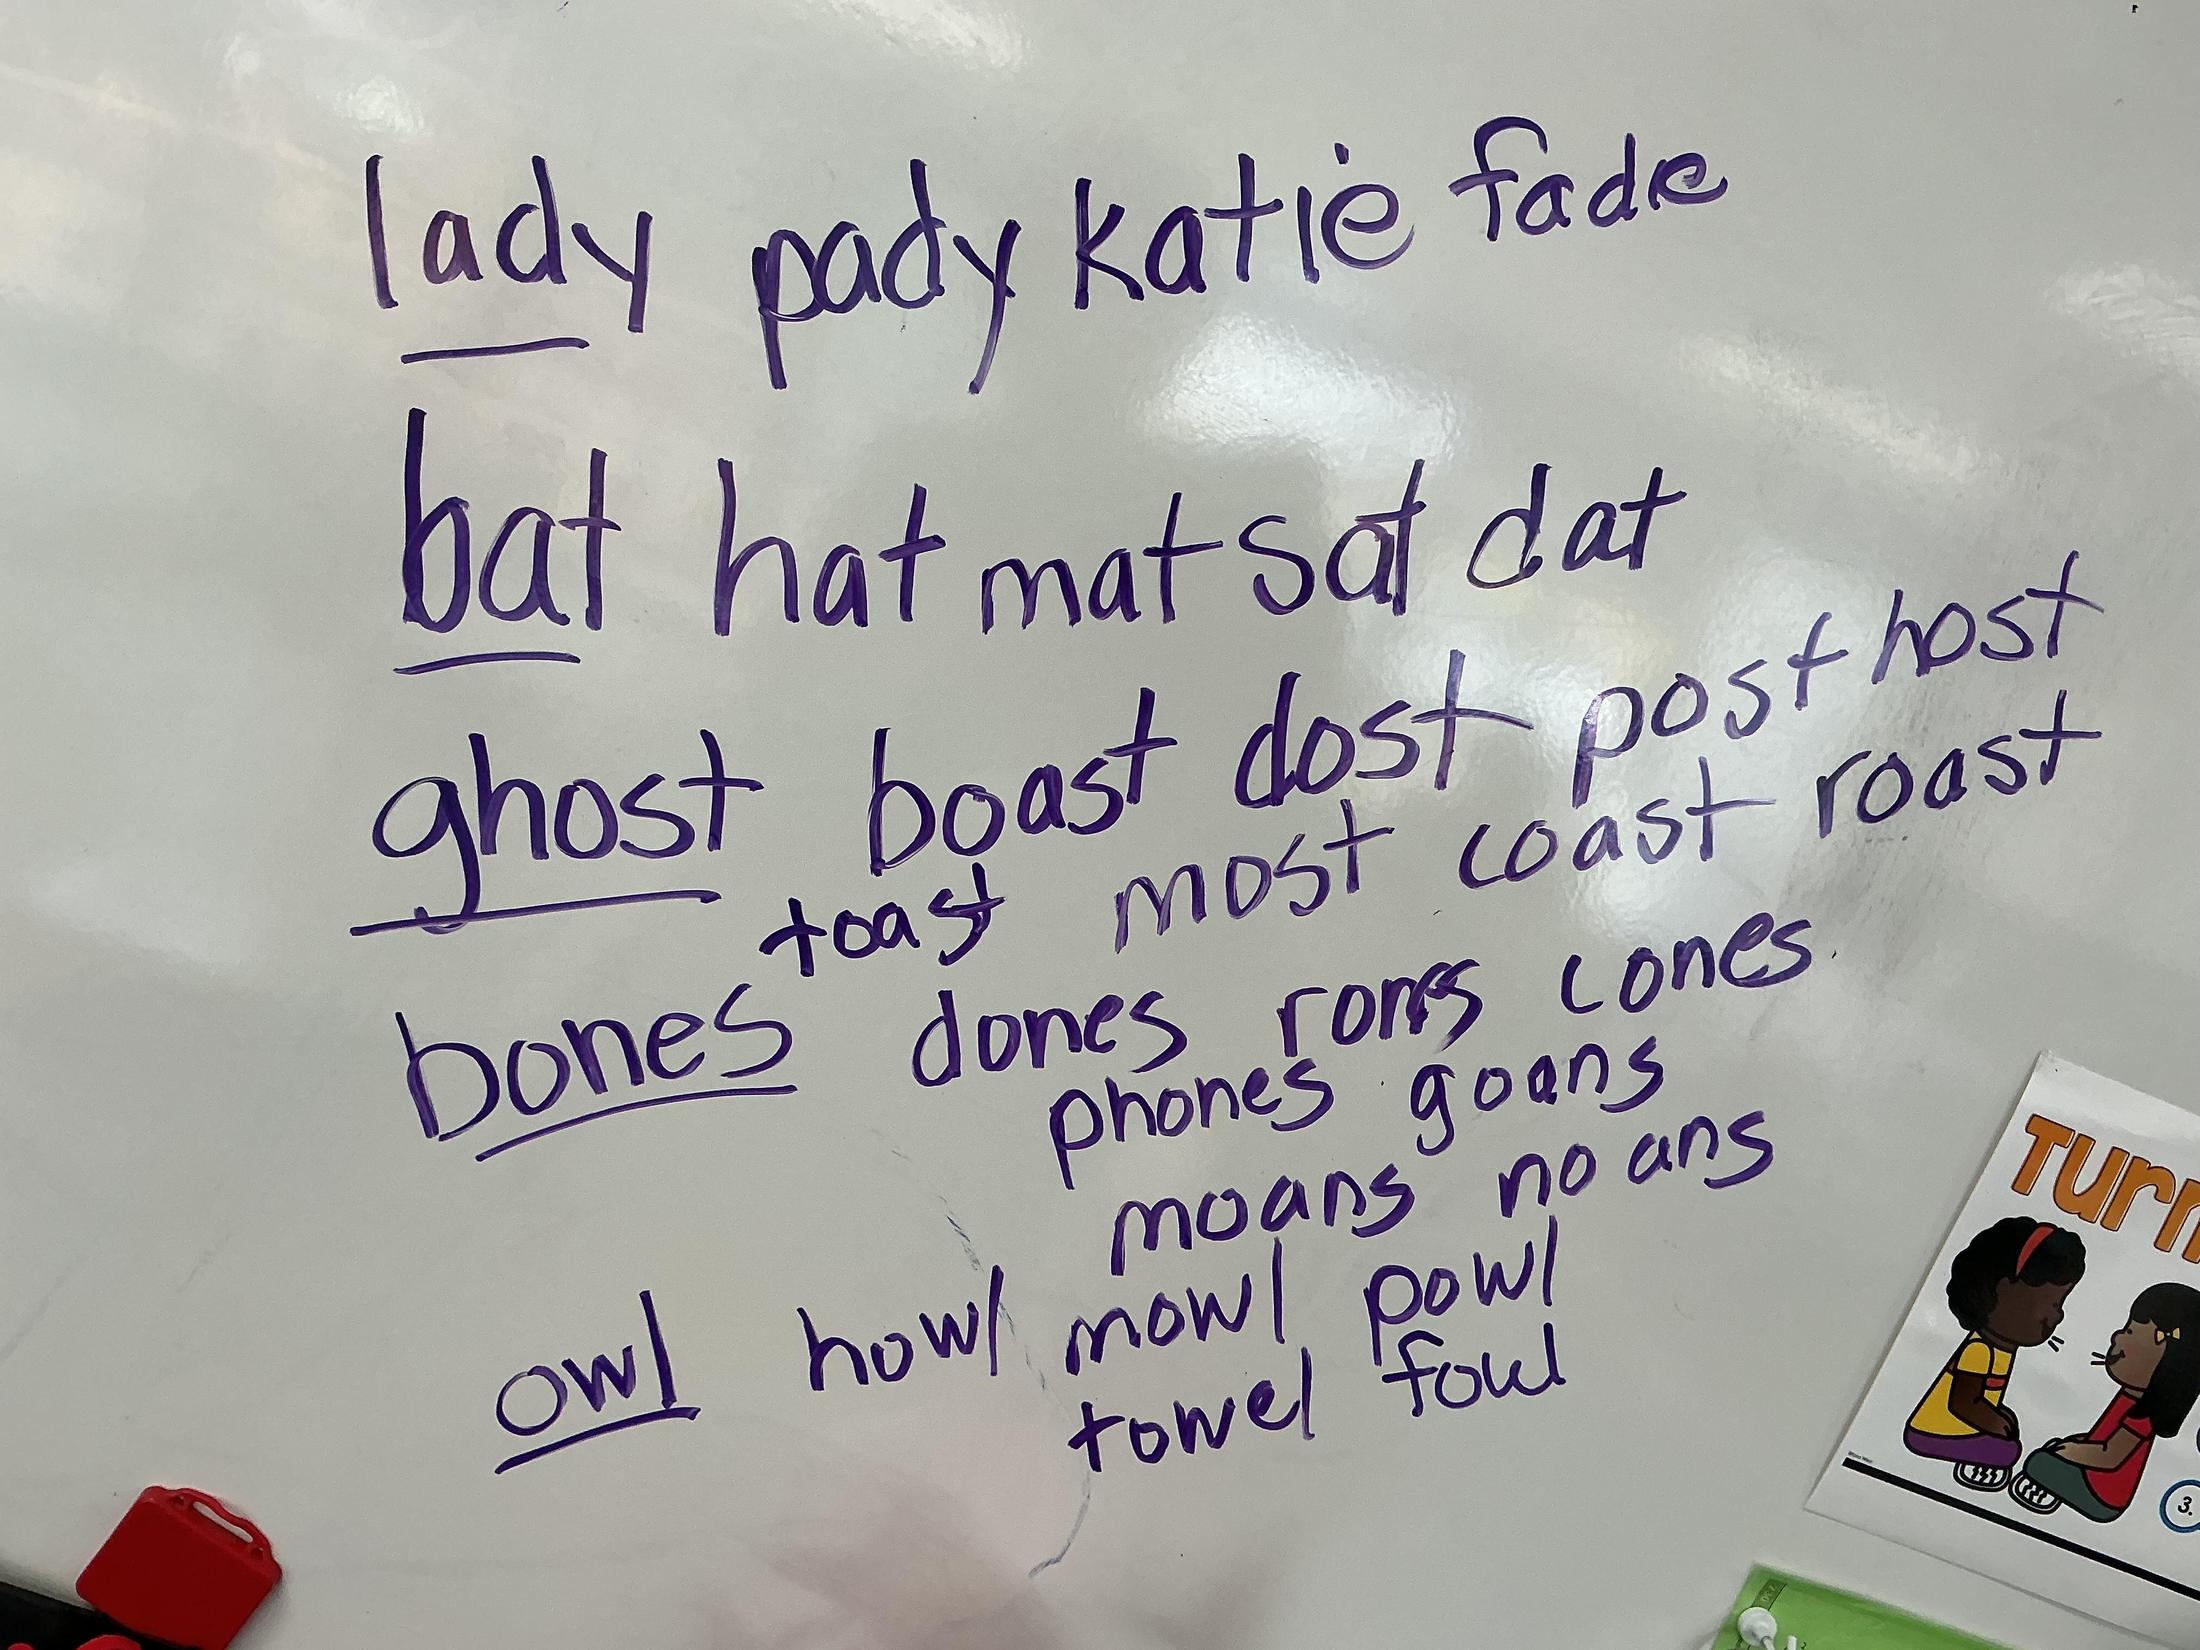 lady pady katie fade
bat hat mat sat dat
ghost boast dost post host
toast most coast roast
bones dones rones cones
phones goans
moans noans
owl howl mowl powl
towel fowl
Turn
3.